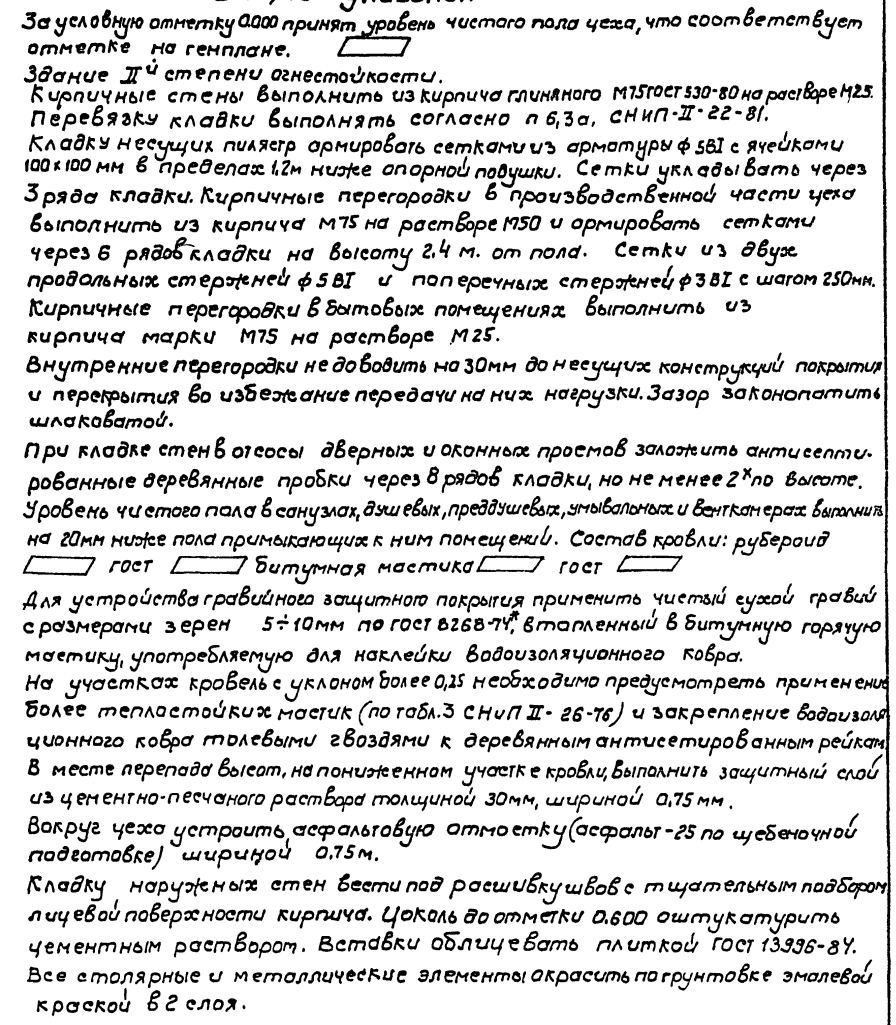 За условную отметку 0.000 принят уровень чистого пола цеха, что соответствует
отметке на генплане.
Здание IIй степени огнестойкости.
Кирпичные стены выполнить из кирпича глиняного М75 гост 530-80 на растворе М25.
Перевязку кладки выполнять согласно п 6,3а, СНиП-II-22-81.
Кладку несущих пилястр армировать сетками из арматуры ф 5ВI с ячейками
100х100 мм в пределах 1,2м ниже опорной подушки. Сетки укладывать через
3 ряда кладки. Кирпичные перегородки в производственной части цеха
выполнить из кирпича М75 на растворе М50 и армировать сетками
через 6 рядов кладки на высоту 2.4 м. от пола. Сетки из двух
продольных стержней ф 5ВI и поперечных стержней ф 3ВI с шагом 250мм.
Кирпичные перегородки в бытовых помещениях выполнить из
кирпича марки М75 на растворе М25.
Внутренние перегородки не доводить на 30мм до несущих конструкций покрытия
и перекрытия во избежание передачи на них нагрузки. Зазор законопатить
шлаковатой.
При кладке стен в откосы дверных и оконных проемов заложить антисепти-
рованные деревянные пробки через 8 рядов кладки, но не менее 2х по высоте.
Уровень чистого пола в санузлах, душевых, преддушевых, умывальных и венткамерах выполнить
на 20мм ниже пола примыкающих к ним помещений. Состав кровли: рубероид
гост битумная мастика гост
Для устройства гравийного защитного покрытия применить чистый сухой гравий
с размерами зерен 5÷10мм по гост 8268-74*, втапленный в битумную горячую
мастику, употребляемую для наклейки водоизоляционного ковра.
На участках кровель с уклоном более 0,25 необходимо предусмотреть применение
более теплостойких мастик (по табл.3 СНиП II-26-76) и закрепление водоизоля
ционного ковра толевыми гвоздями к деревянным антисетированным рейкам
В месте перепада высот, на пониженном участке кровли, выполнить защитный слой
из цементно-песчаного раствора толщиной 30мм, шириной 0,75мм.
Вокруг цеха устроить асфальтовую отмостку (асфальт-25 по щебеночной
подготовке) шириной 0.75м.
Кладку наружных стен вести под расшивку швов с тщательным подбором
лицевой поверхности кирпича. Цоколь до отметки 0.600 оштукатурить
цементным раствором. Вставки облицевать плиткой гост 13996-84.
Все столярные и металлические элементы окрасить по грунтовке эмалевой
краской в 2 слоя.